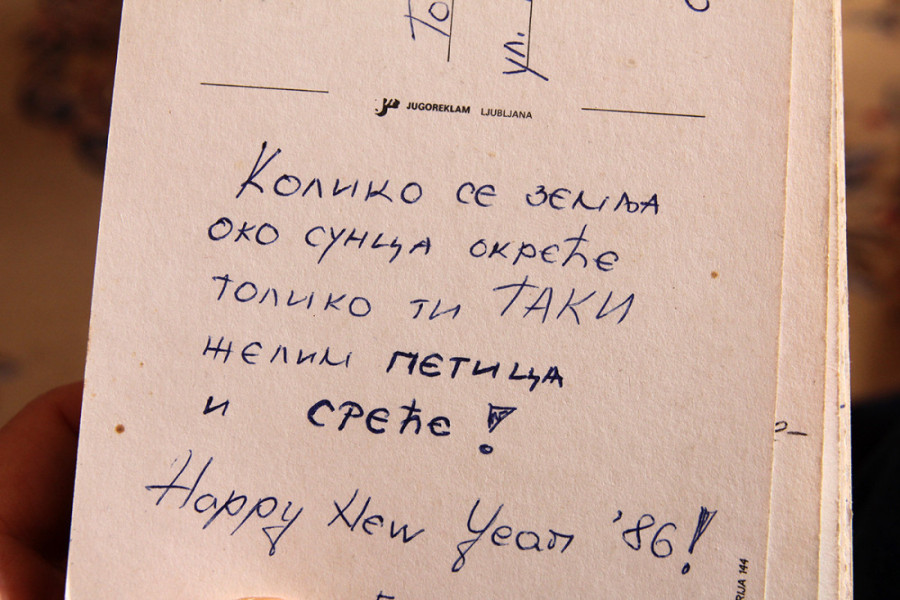 То
ул.
JUGOREKLAM LJUBLJANA
Колико се земља
око сунца окреће
толико ти ТАКИ
желим петица
и среће!
Happy New Year '86!
RIJA 144